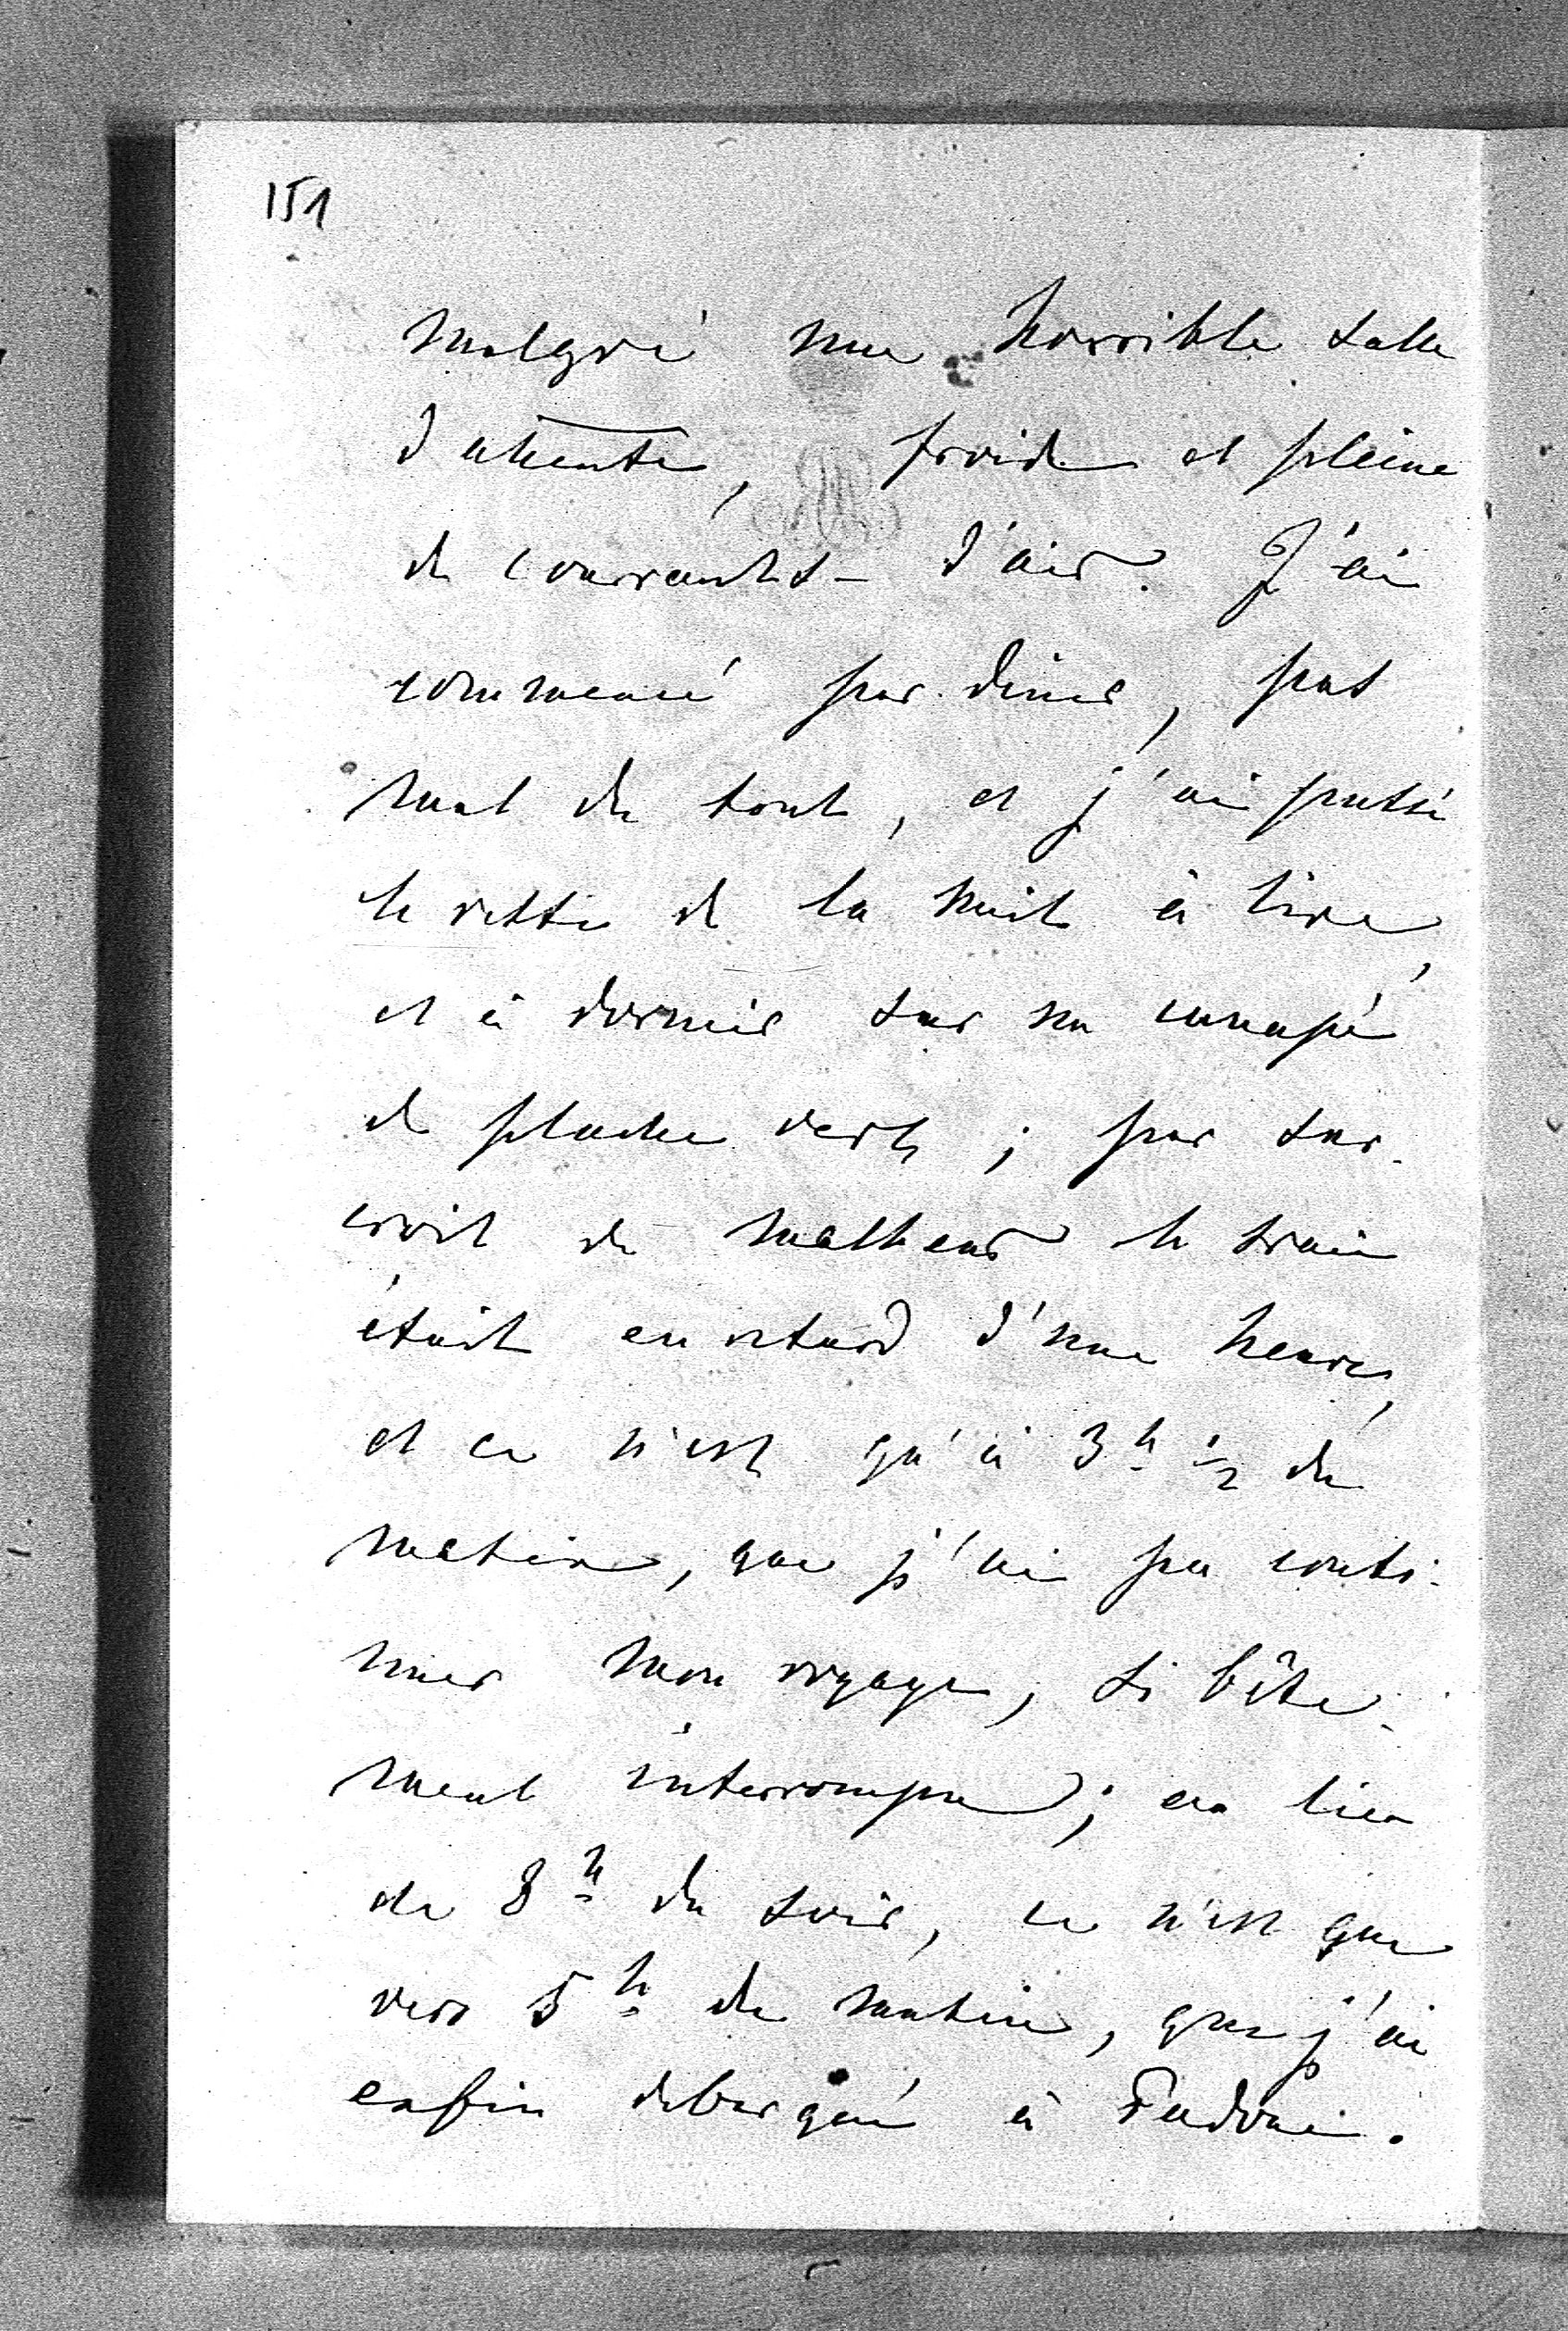 151
malgré une horrible salle
d'attente, froide et pleine
de courrants d'air. J'ai
commencé par diner, pas
mal du tout, et j'ai passé
le reste de la nuit à lire,
et à dormir sur un canapé
de pluche vert ; par sur-
croit de malheur le train
était en retard d'une heure,
et ce n'est qu'à 3h 1/2 du
matin, que j'ai pu conti-
nuer mon voyage, si bête-
ment interrompu ; au lieu
de 8h du soir, ce n'est que
vers 5h du matin, que j'ai
enfin debarqué à Padoue.